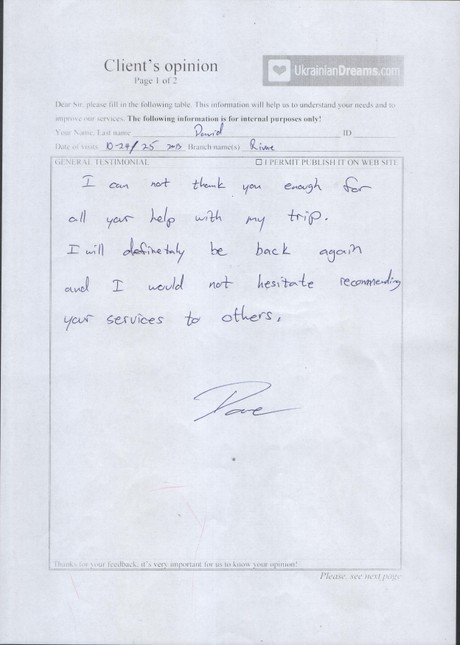 Client's opinion
Page 1 of 2
UkrainianDreams.com
Dear Sir, please fill in the following table. This information will help us to understand your needs and to
improve our services. The following information is for internal purposes only!
Your Name, Last name David ID
Date of visits 10-24/25 2013 Branch name(s)
GENERAL TESTIMONIAL ☐ I PERMIT PUBLISH IT ON WEB SITE
I can not thank you enough for
all your help with my trip.
I will definetaly be back again
and I would not hesitate recommending
your services to others.
Dave
Thanks for your feedback, it's very important for us to know your opinion!
Please, see next page